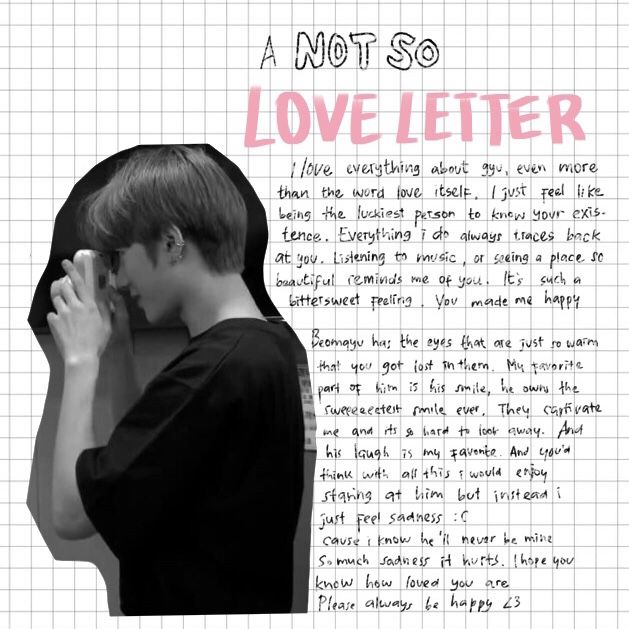 A NOT SO
LOVE LETTER
I love everything about gyu, even more
than the word love itself. I just feel like
being the luckiest person to know your exis-
tence. Everything i do always traces back
at you. Listening to music, or seeing a place so
beautiful reminds me of you. It's such a
bittersweet feeling. You made me happy
Beomgyu has the eyes that are just so warm
that you got lost in them. My favorite
part of him is his smile, he owns the
sweeeeectest smile ever. They captivate
me and its so hard to look away. And
his laugh is my favorite. And you'd
think with all this i would enjoy
staring at him but instead i
just feel sadness :C
cause i know he'll never be mine
So much sadness it hurts. I hope you
know how loved you are
Please always be happy <3